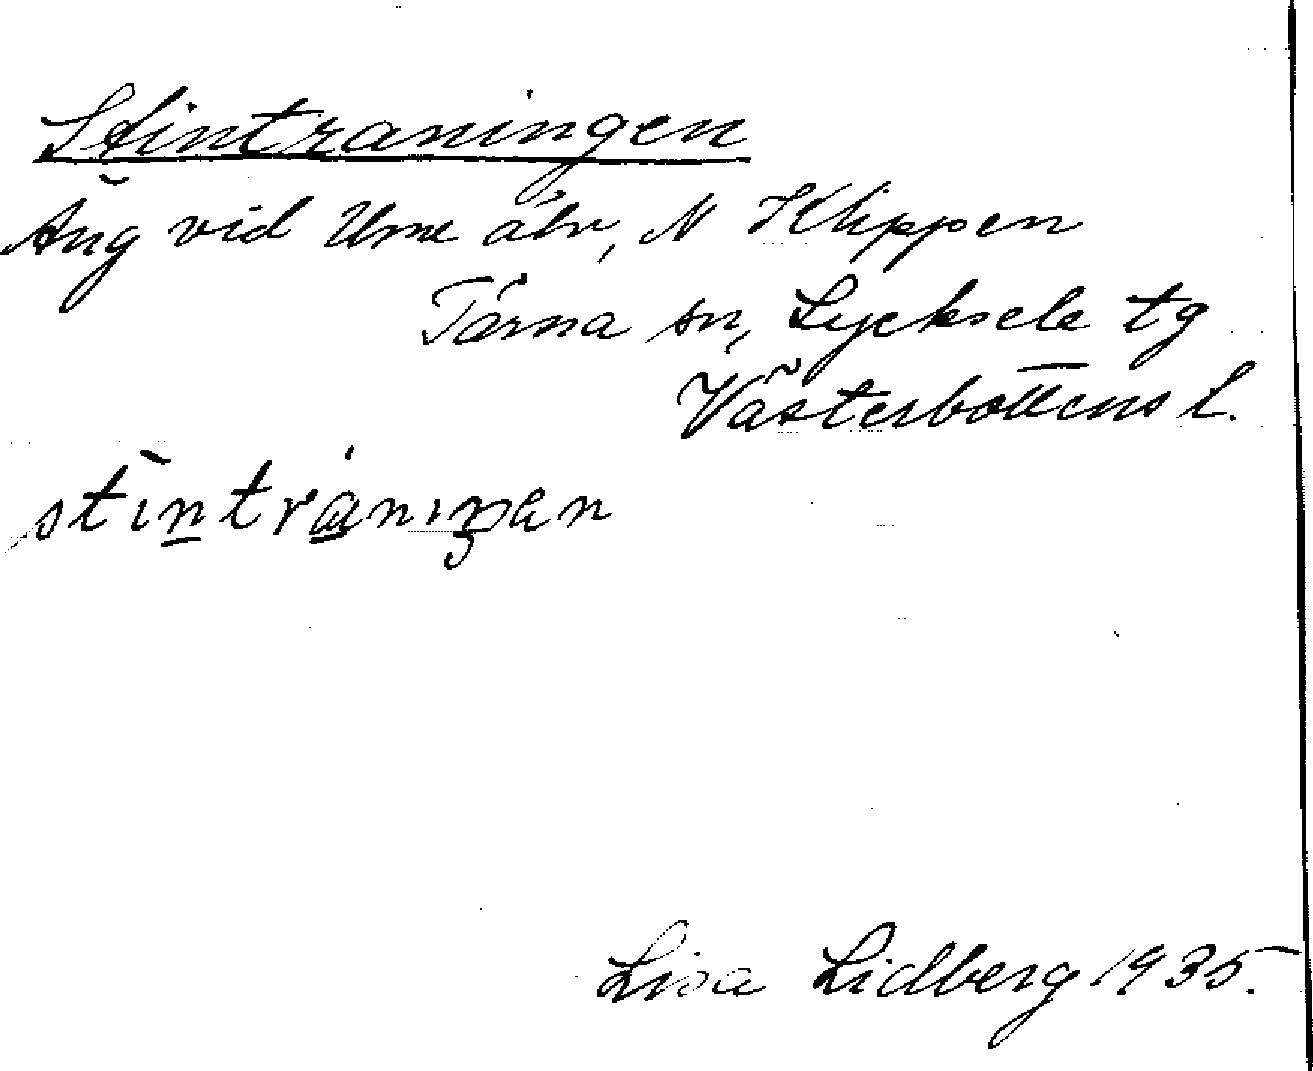 Stintraningen
Äng vid Ume älv, N Klippen
Tärna sn, Lycksele tg
Västerbottens l.
stìntránıŋen
Lisa Lidberg 1935.